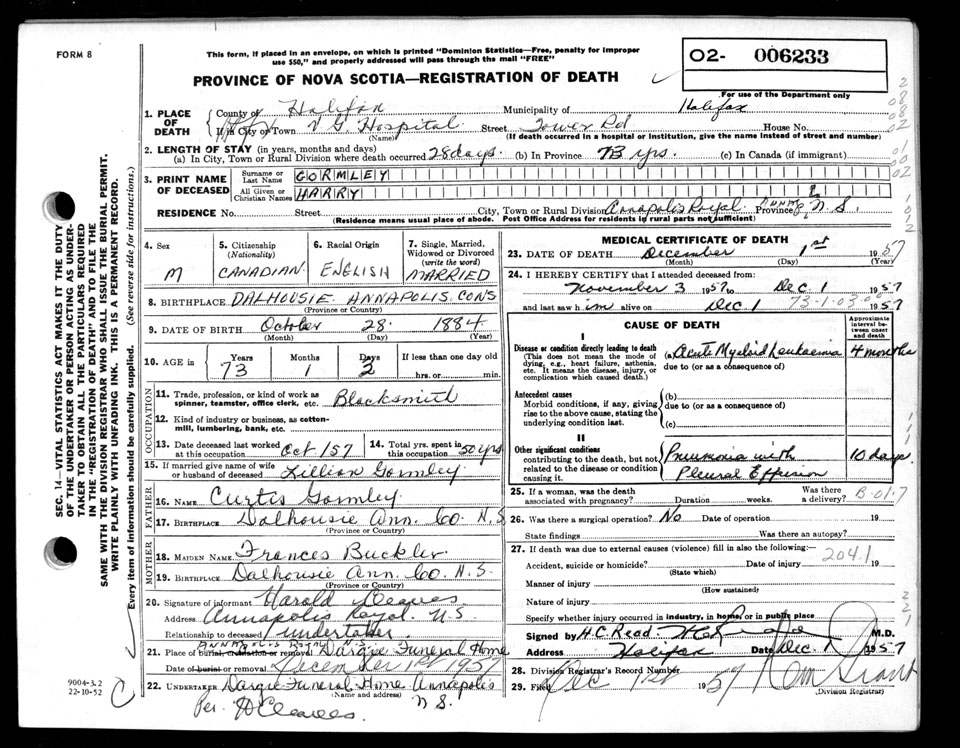 FORM 8
This form, if placed in an envelope, on which is printed "Dominion Statistics—Free, penalty for improper
use $50," and properly addressed will pass through the mail "FREE"
PROVINCE OF NOVA SCOTIA—REGISTRATION OF DEATH
O2- 006233
For use of the Department only
1. PLACE OF DEATH
County of Halifax Municipality of Halifax
If in City or Town V G Hospital Street Tower Rd House No.
(Name) (If death occurred in a hospital or institution, give the name instead of street and number)
2. LENGTH OF STAY (in years, months and days)
(a) In City, Town or Rural Division where death occurred 28 days. (b) In Province 73 yrs. (c) In Canada (if immigrant)
3. PRINT NAME OF DECEASED
Surname or Last Name GORMLEY
All Given or Christian Names HARRY
RESIDENCE No. Street City, Town or Rural Division Annapolis Royal Province N.S.
(Residence means usual place of abode. Post Office Address for residents in rural parts not sufficient)
4. Sex M
5. Citizenship (Nationality) CANADIAN
6. Racial Origin ENGLISH
7. Single, Married, Widowed or Divorced (write the word) MARRIED
8. BIRTHPLACE DALHOUSIE ANNAPOLIS CO NS
(Province or Country)
9. DATE OF BIRTH October 28 1884
(Month) (Day) (Year)
10. AGE in Years 73 Months 1 Days 3 If less than one day old hrs. or min.
OCCUPATION
11. Trade, profession, or kind of work as spinner, teamster, office clerk, etc. Blacksmith
12. Kind of industry or business, as cotton-mill, lumbering, bank, etc.
13. Date deceased last worked at this occupation Oct 1/57
14. Total yrs. spent in this occupation 50 yrs
15. If married give name of wife or husband of deceased Lillian Gormley
FATHER
16. NAME Curtis Gormley
17. BIRTHPLACE Dalhousie Ann. Co. N.S
(Province or Country)
MOTHER
18. MAIDEN NAME Frances Buckler
19. BIRTHPLACE Dalhousie Ann. Co. N.S.
(Province or Country)
20. Signature of informant Harold Cleaves
Address Annapolis Royal N.S
Relationship to deceased undertaker
21. Place of burial, cremation or removal Dargie Funeral Home
Date of burial or removal December 1st 1957
22. UNDERTAKER Dargie Funeral Home Annapolis
(Name and address) N S.
Per. H Cleaves.
MEDICAL CERTIFICATE OF DEATH
23. DATE OF DEATH December 1st 1957
(Month) (Day) (Year)
24. I HEREBY CERTIFY that I attended deceased from:
November 3 1957 to Dec 1 1957
and last saw him alive on Dec 1 1957
73-1-03-00
CAUSE OF DEATH
Approximate interval between onset and death
I
Disease or condition directly leading to death
(This does not mean the mode of dying, e.g., heart failure, asthenia, etc. It means the disease, injury, or complication which caused death.)
(a) Acute Myeloid Leukaemia 4 months
due to (or as a consequence of)
Antecedent causes
Morbid conditions, if any, giving rise to the above cause, stating the underlying condition last.
(b)
due to (or as a consequence of)
(c)
II
Other significant conditions
contributing to the death, but not related to the disease or condition causing it.
Pneumonia with 10 days
Pleural Effusion
25. If a woman, was the death associated with pregnancy? Duration weeks. Was there a delivery?
B-01-7
26. Was there a surgical operation? No Date of operation 19
State findings Was there an autopsy?
27. If death was due to external causes (violence) fill in also the following:—
2041
Accident, suicide or homicide? Date of injury 19
(State which)
Manner of injury
(How sustained)
Nature of injury
Specify whether injury occurred in industry, in home, or in public place
Signed by H.C. Read M.D.
Address Halifax Date Dec. 1 1957
28. Division Registrar's Record Number
29. Filed Dec 1st 1957
(Division Registrar)
SEC. 14—VITAL STATISTICS ACT MAKES IT THE DUTY
OF THE UNDERTAKER OR PERSON ACTING AS UNDER-
TAKER TO OBTAIN ALL THE PARTICULARS REQUIRED
IN THE "REGISTRATION OF DEATH" AND TO FILE THE
SAME WITH THE DIVISION REGISTRAR WHO SHALL ISSUE THE BURIAL PERMIT.
WRITE PLAINLY WITH UNFADING INK. THIS IS A PERMANENT RECORD.
Every item of information should be carefully supplied. (See reverse side for instructions.)
9004-3.2
22-10-52